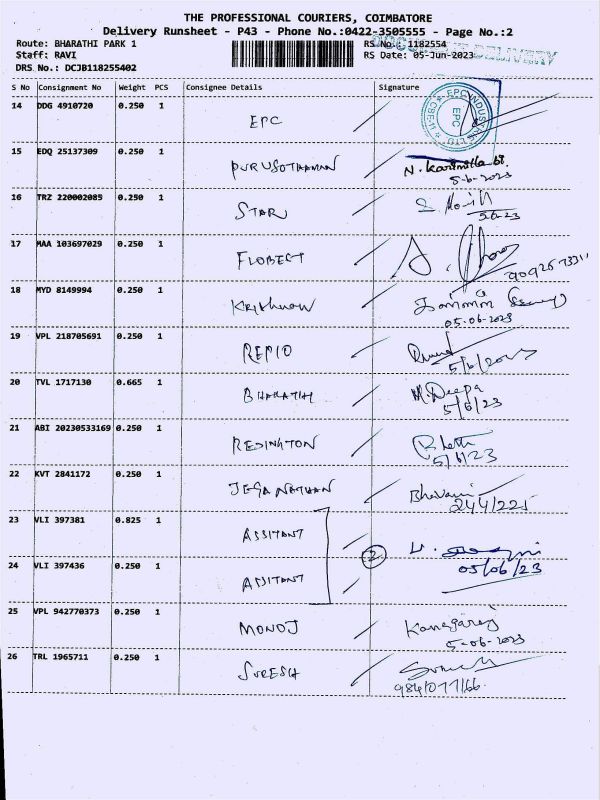 THE PROFESSIONAL COURIERS, COIMBATORE
Delivery Runsheet - P43 - Phone No.:0422-3505555 - Page No.:2
Route: BHARATHI PARK 1 RS No.: 1182554
Staff: RAVI RS Date: 05-Jun-2023
DRS No.: DCJB118255402
DELIVERY
S No Consignment No Weight PCS Consignee Details Signature
14 DDG 4910720 0.250 1 EPC
EPC
15 EDQ 25137309 0.250 1 PURUSOTHAMAN N. Karimilla bi.
5-6-2023
16 TRZ 220002085 0.250 1 STAR
5/6/23
17 MAA 103697029 0.250 1 FLOBECT
18 MYD 8149994 0.250 1 Krishnan
05-06-2023
19 VPL 218705691 0.250 1 REPIO
5/6/2023
20 TVL 1717130 0.665 1 BHARATH M. Deepa
5/6/23
21 ABI 20230533169 0.250 1 REDINGTON
5/6/23
22 KVT 2841172 0.250 1 JEGANATHAN Bhavani
244/225
23 VLI 397381 0.825 1 ASSITANT
2
24 VLI 397436 0.250 1 ASSITANT 05/06/23
25 VPL 942770373 0.250 1 MONOJ Kanagaraj
5-06-2023
26 TRL 1965711 0.250 1 SURESH